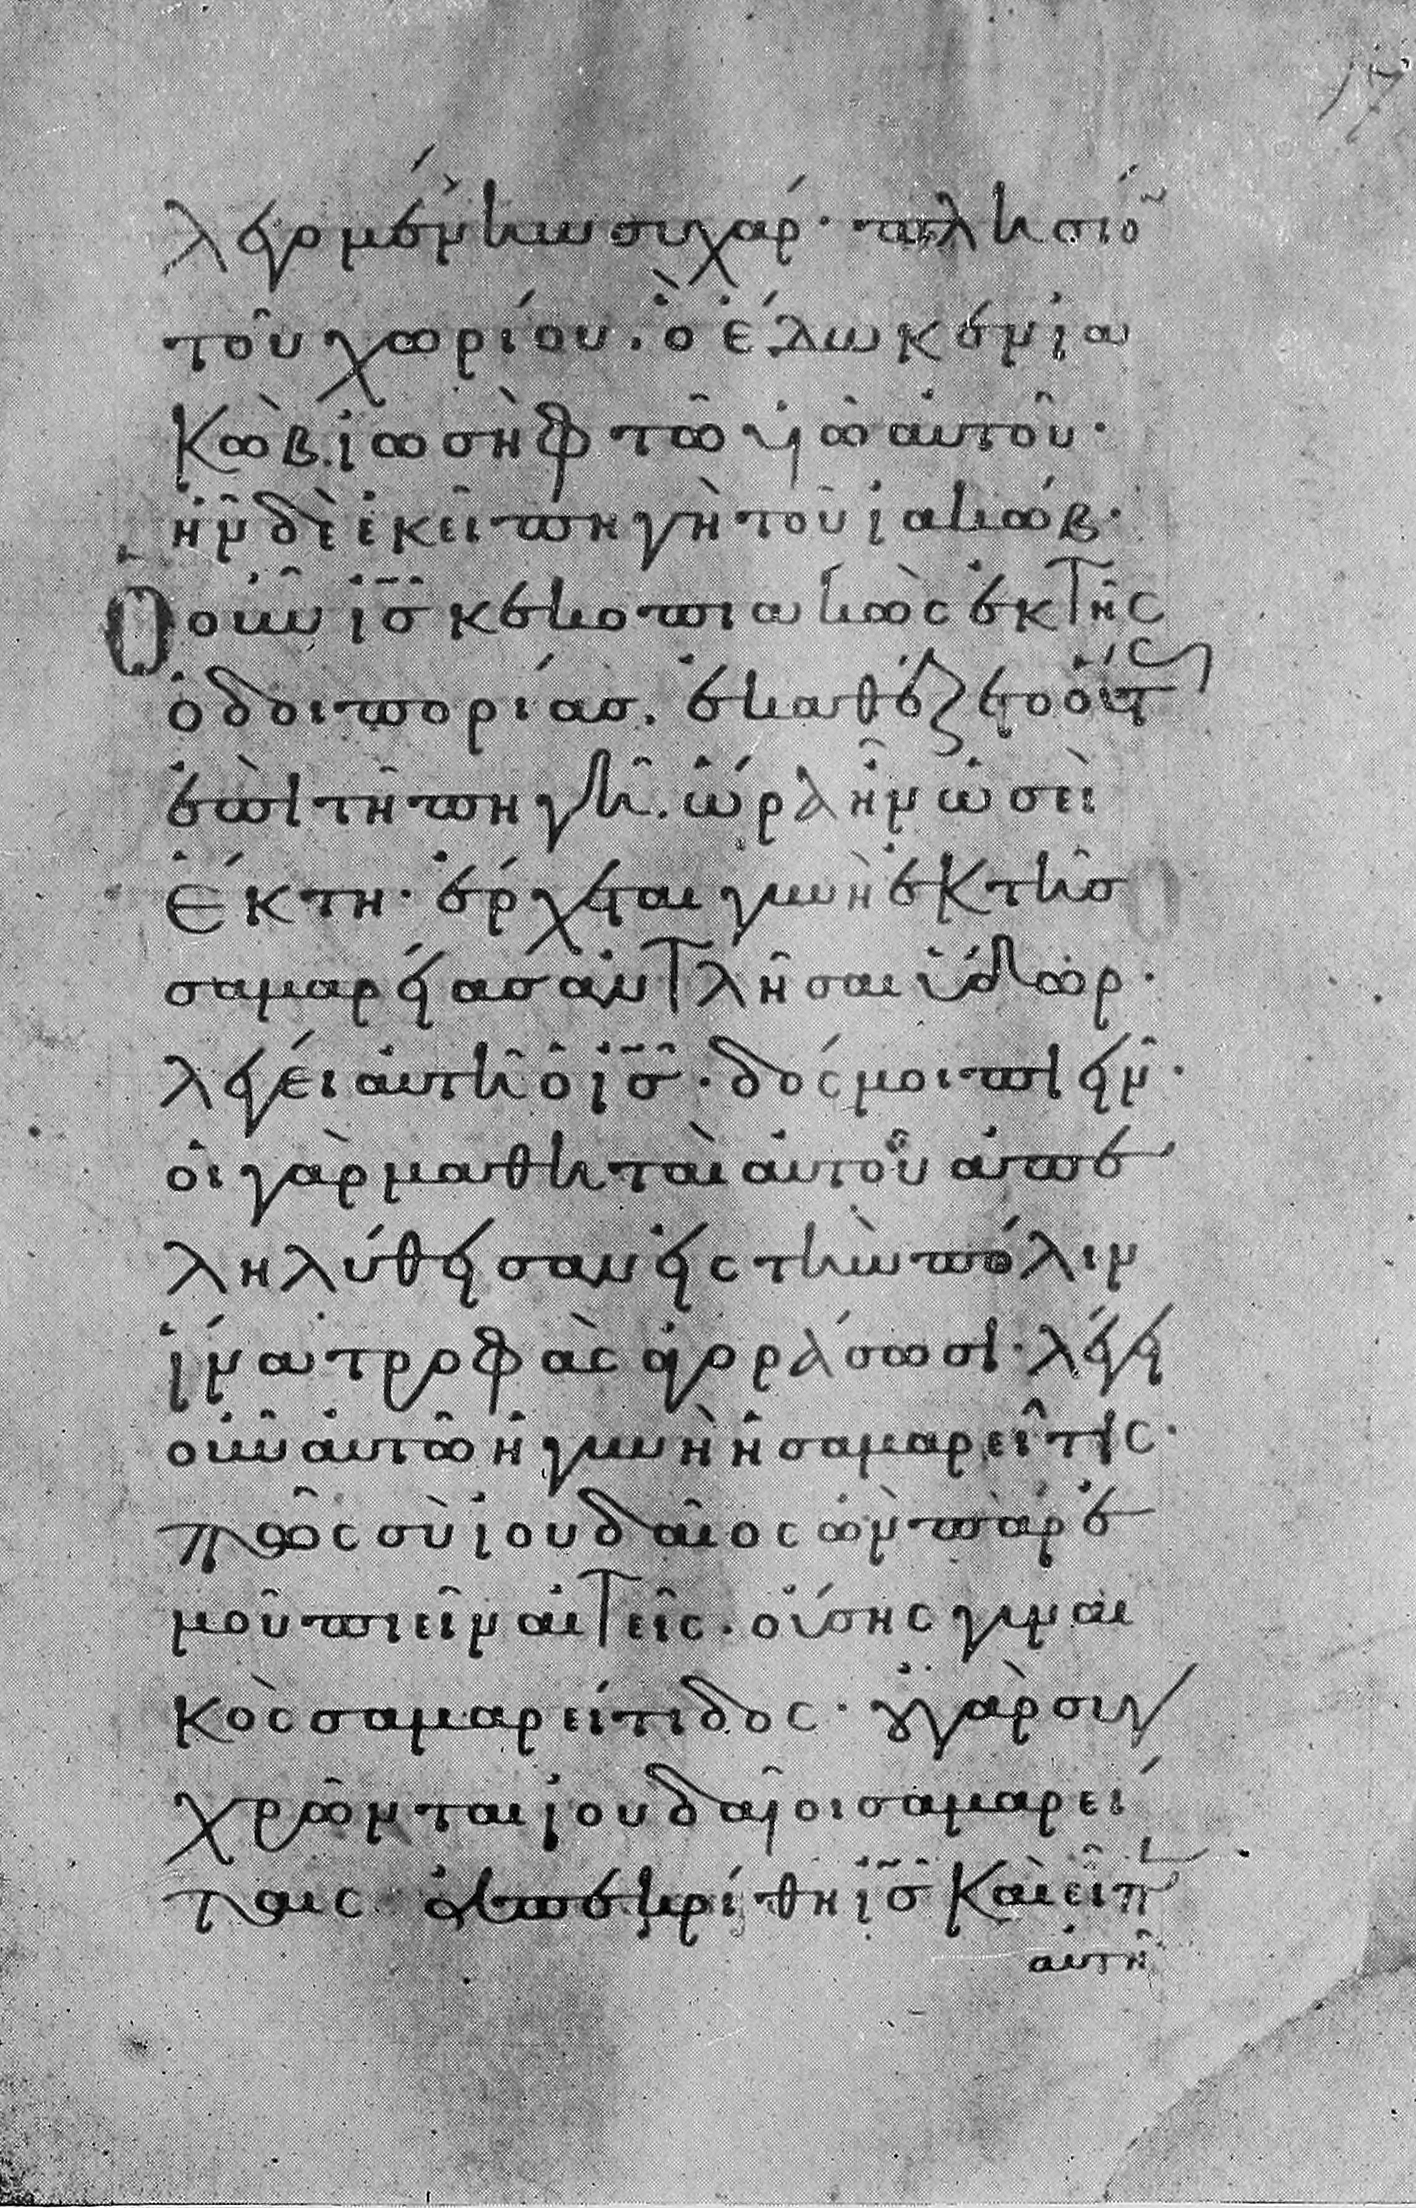 λεγομένην συχάρ· πλησίο
τοῦ χωρίου. ὃ ἔδωκεν ἰα
κὼβ. ἰωσὴφ τῶ υἱῶ αὐτοῦ·
ἦν δὲ ἐκεῖ πηγὴ τοῦ ἰακώβ·
Ὁ οὖν ἰ̅σ̅ κεκοπιακὼς ἐκ τῆς
ὁδοιπορίασ. ἐκαθέζετο οὕτ
ἐπὶ τῆ πηγῆ. ὥρα ἦν ὡσεὶ
ἕκτη· ἔρχεται γυνὴ ἐκ τῆσ
σαμαρείασ ἀντλῆσαι ὕδωρ·
λέγει αὐτῆ ὁ ἰ̅σ̅· δός μοι πιεῖν·
οἱ γὰρ μαθηταὶ αὐτοῦ ἀπε
ληλύθεισαν εἰς τὴν πόλιν
ἵνα τροφὰς ἀγοράσωσι· λέγει
οὖν αὐτῶ ἡ γυνὴ ἡ σαμαρεῖτις·
πῶς σὺ ἰουδαῖος ὢν παρ ἐ
μοῦ πιεῖν αἰτεῖς· οὔσης γυναι
κὸς σαμαρείτιδος· οὐ γὰρ συγ
χρῶνται ἰουδαῖοι σαμαρεί
ταις. ἀπεκρίθη ἰ̅σ̅ καὶ εἶπ
αὐτῆ